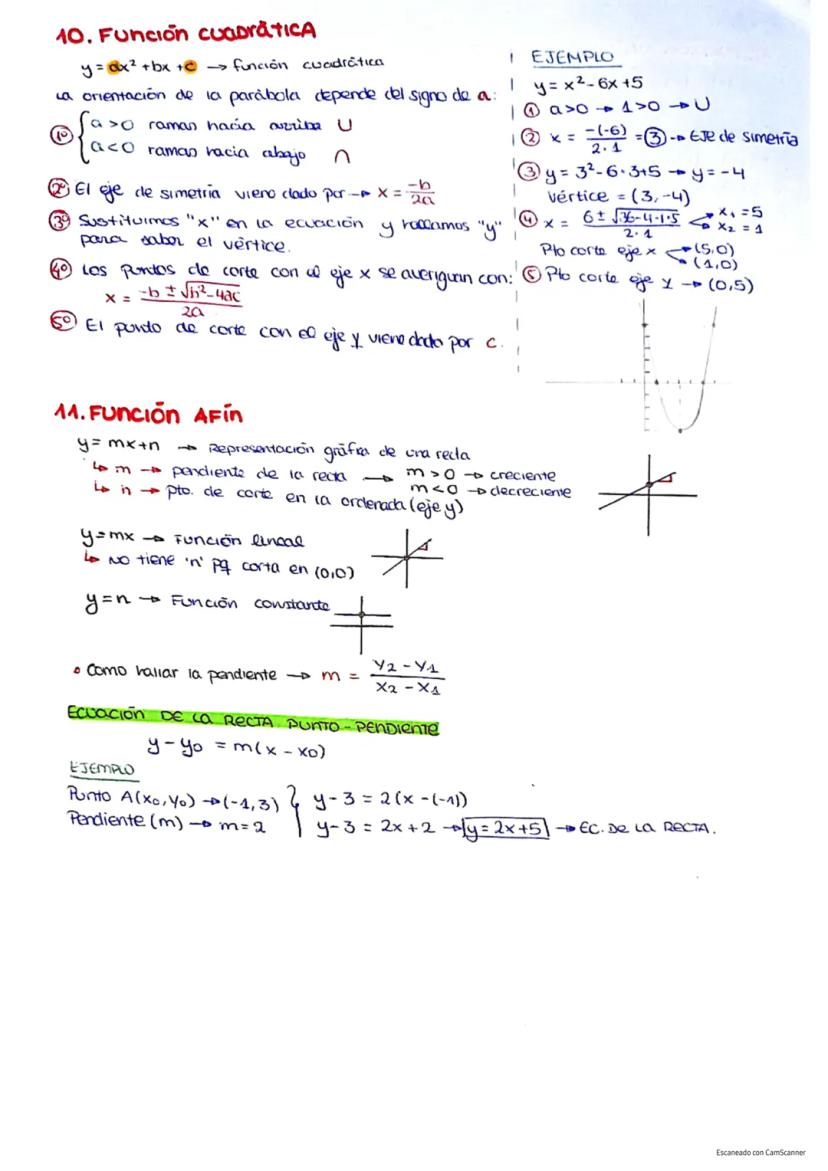 10. Función cuadrática
y = ax² + bx + c → función cuadrática
La orientación de la parábola depende del signo de a:
1º { a > 0 ramas hacia arriba ∪
a < 0 ramas hacia abajo ∩
2º El eje de simetría viene dado por → x = -b / 2a
3º Sustituimos "x" en la ecuación y hallamos "y"
para saber el vértice.
4º Los puntos de corte con el eje x se averiguan con:
x = -b ± √b² - 4ac / 2a
5º El punto de corte con el eje y viene dado por c.
EJEMPLO
y = x² - 6x + 5
① a > 0 → 1 > 0 → ∪
② x = -(-6) / 2·1 = ③ → EJE de simetría
③ y = 3² - 6·3+5 → y = -4
Vértice = (3, -4)
④ x = 6 ± √36-4·1·5 / 2·1 x₁ = 5
x₂ = 1
Pto corte eje x (5,0)
(1,0)
⑤ Pto corte eje y → (0,5)
11. Función Afín
y = mx + n → Representación gráfica de una recta
↳ m → pendiente de la recta → m > 0 → creciente
m < 0 → decreciente
↳ n → pto. de corte en la ordenada (eje y)
y = mx → Función lineal
↳ No tiene 'n' pq corta en (0,0)
y = n → Función constante
• Como hallar la pendiente → m = Y₂ - Y₁ / X₂ - X₁
ECUACIÓN DE LA RECTA PUNTO-PENDIENTE
y - y₀ = m(x - x₀)
EJEMPLO
Punto A(x₀, y₀) → (-1, 3) } y - 3 = 2(x - (-1))
Pendiente (m) → m = 2 y - 3 = 2x + 2 → y = 2x + 5 → EC. DE LA RECTA.
Escaneado con CamScanner